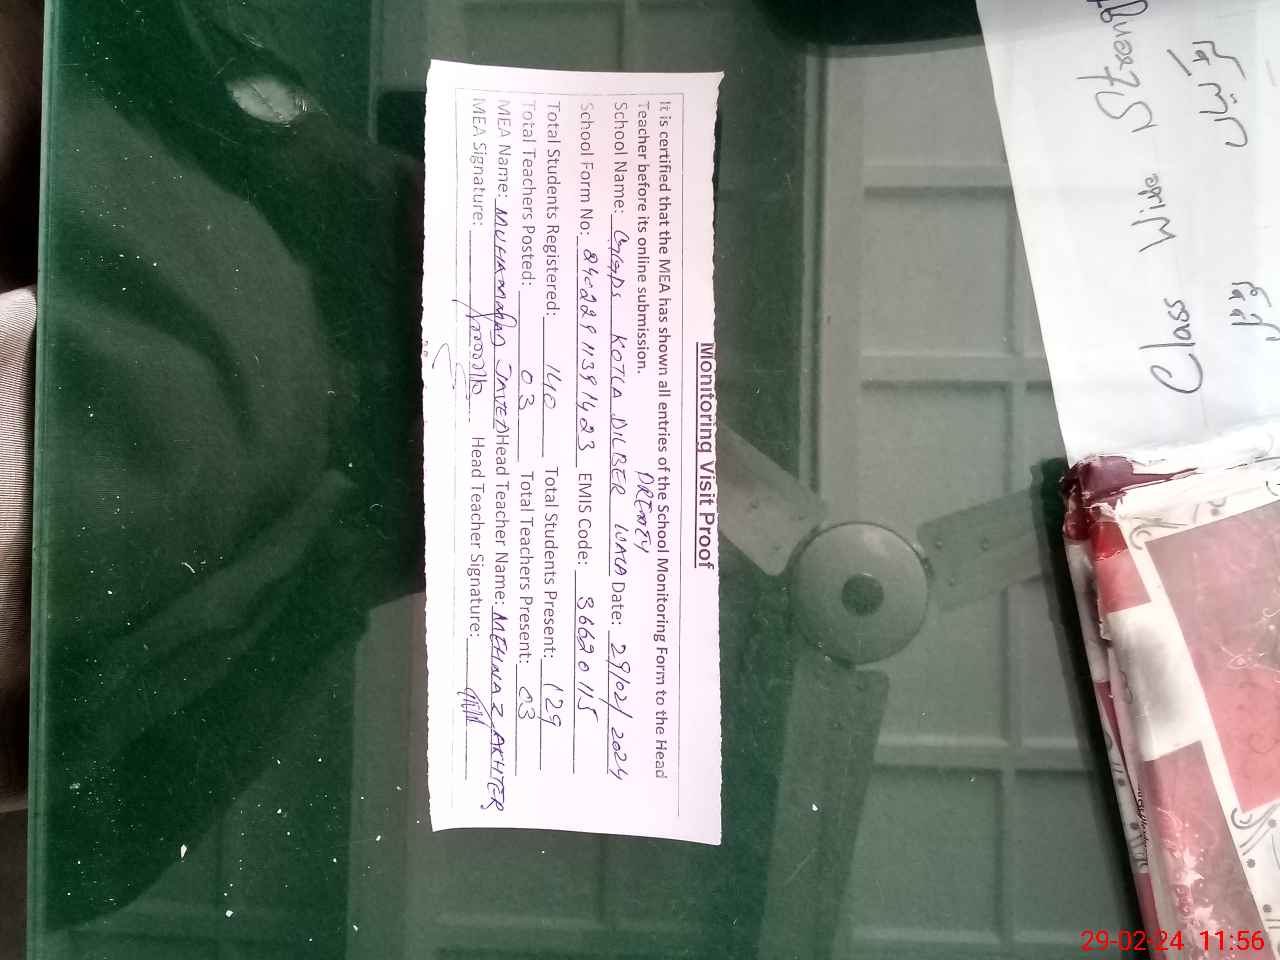 Monitoring Visit Proof
It is certified that the MEA has shown all entries of the School Monitoring Form to the Head
Teacher before its online submission.
School Name: GGPS KOTLA DILBER WALA Date: 29/02/2024
School Form No: EMIS Code: 36620115
Total Students Registered: 140 Total Students Present: 129
Total Teachers Posted: 03 Total Teachers Present: 03
MEA Name: MUHAMMAD JAVED Head Teacher Name: MEHNAZ AKHTER
MEA Signature: Head Teacher Signature:
Class Wise
29-02-24 11:56